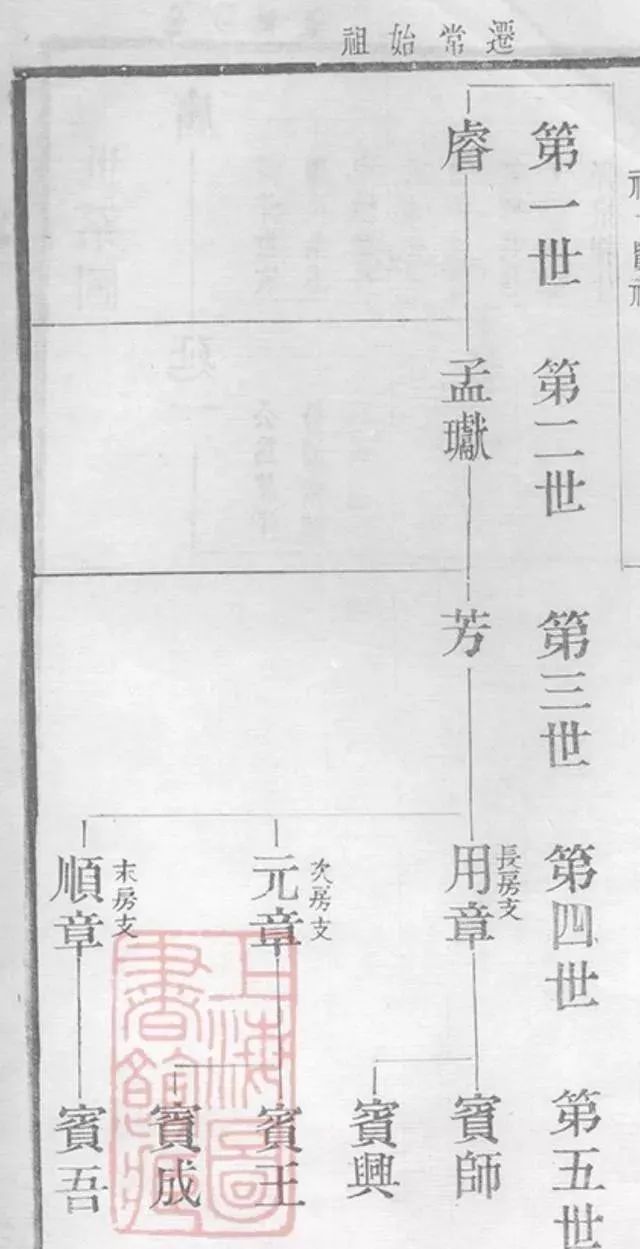 遷常始祖
第一世
睿
第二世
孟瓛
第三世
芳
第四世
用章
長房支
元章
次房支
順章
末房支
第五世
賓師
賓興
賓王
賓成
賓吾
上海圖書館藏